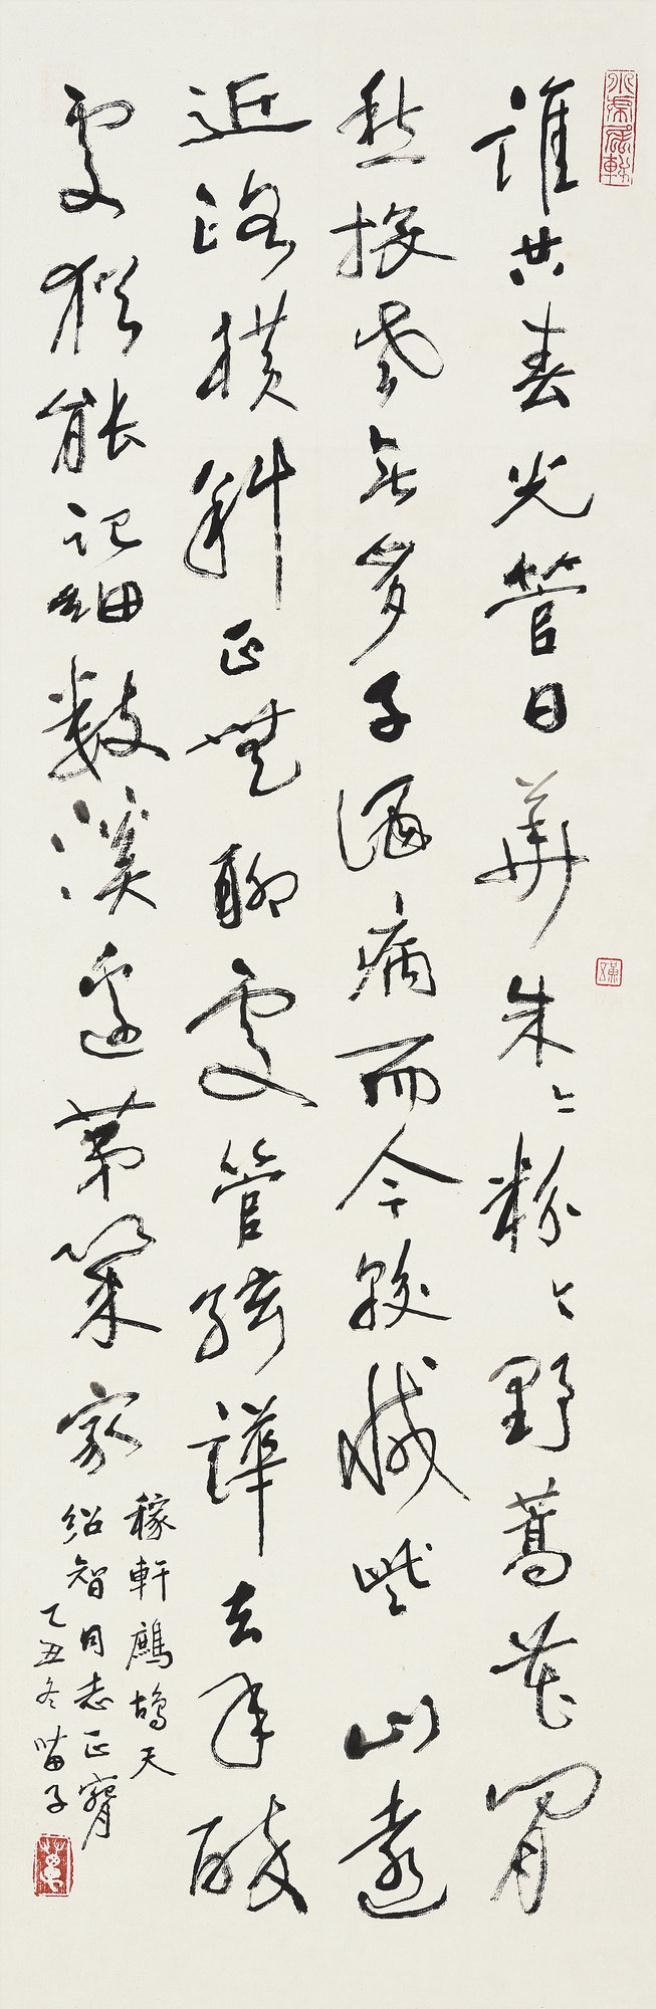 誰共春光管日華朱〻粉〻野蒿花閒
愁投老無多子酒病而今較減些山遠
近路橫斜正無聊處管絃譁去年醉
處猶能記細數溪邊第家
稼軒鷓鴣天
紹智同志正
乙丑冬苗子